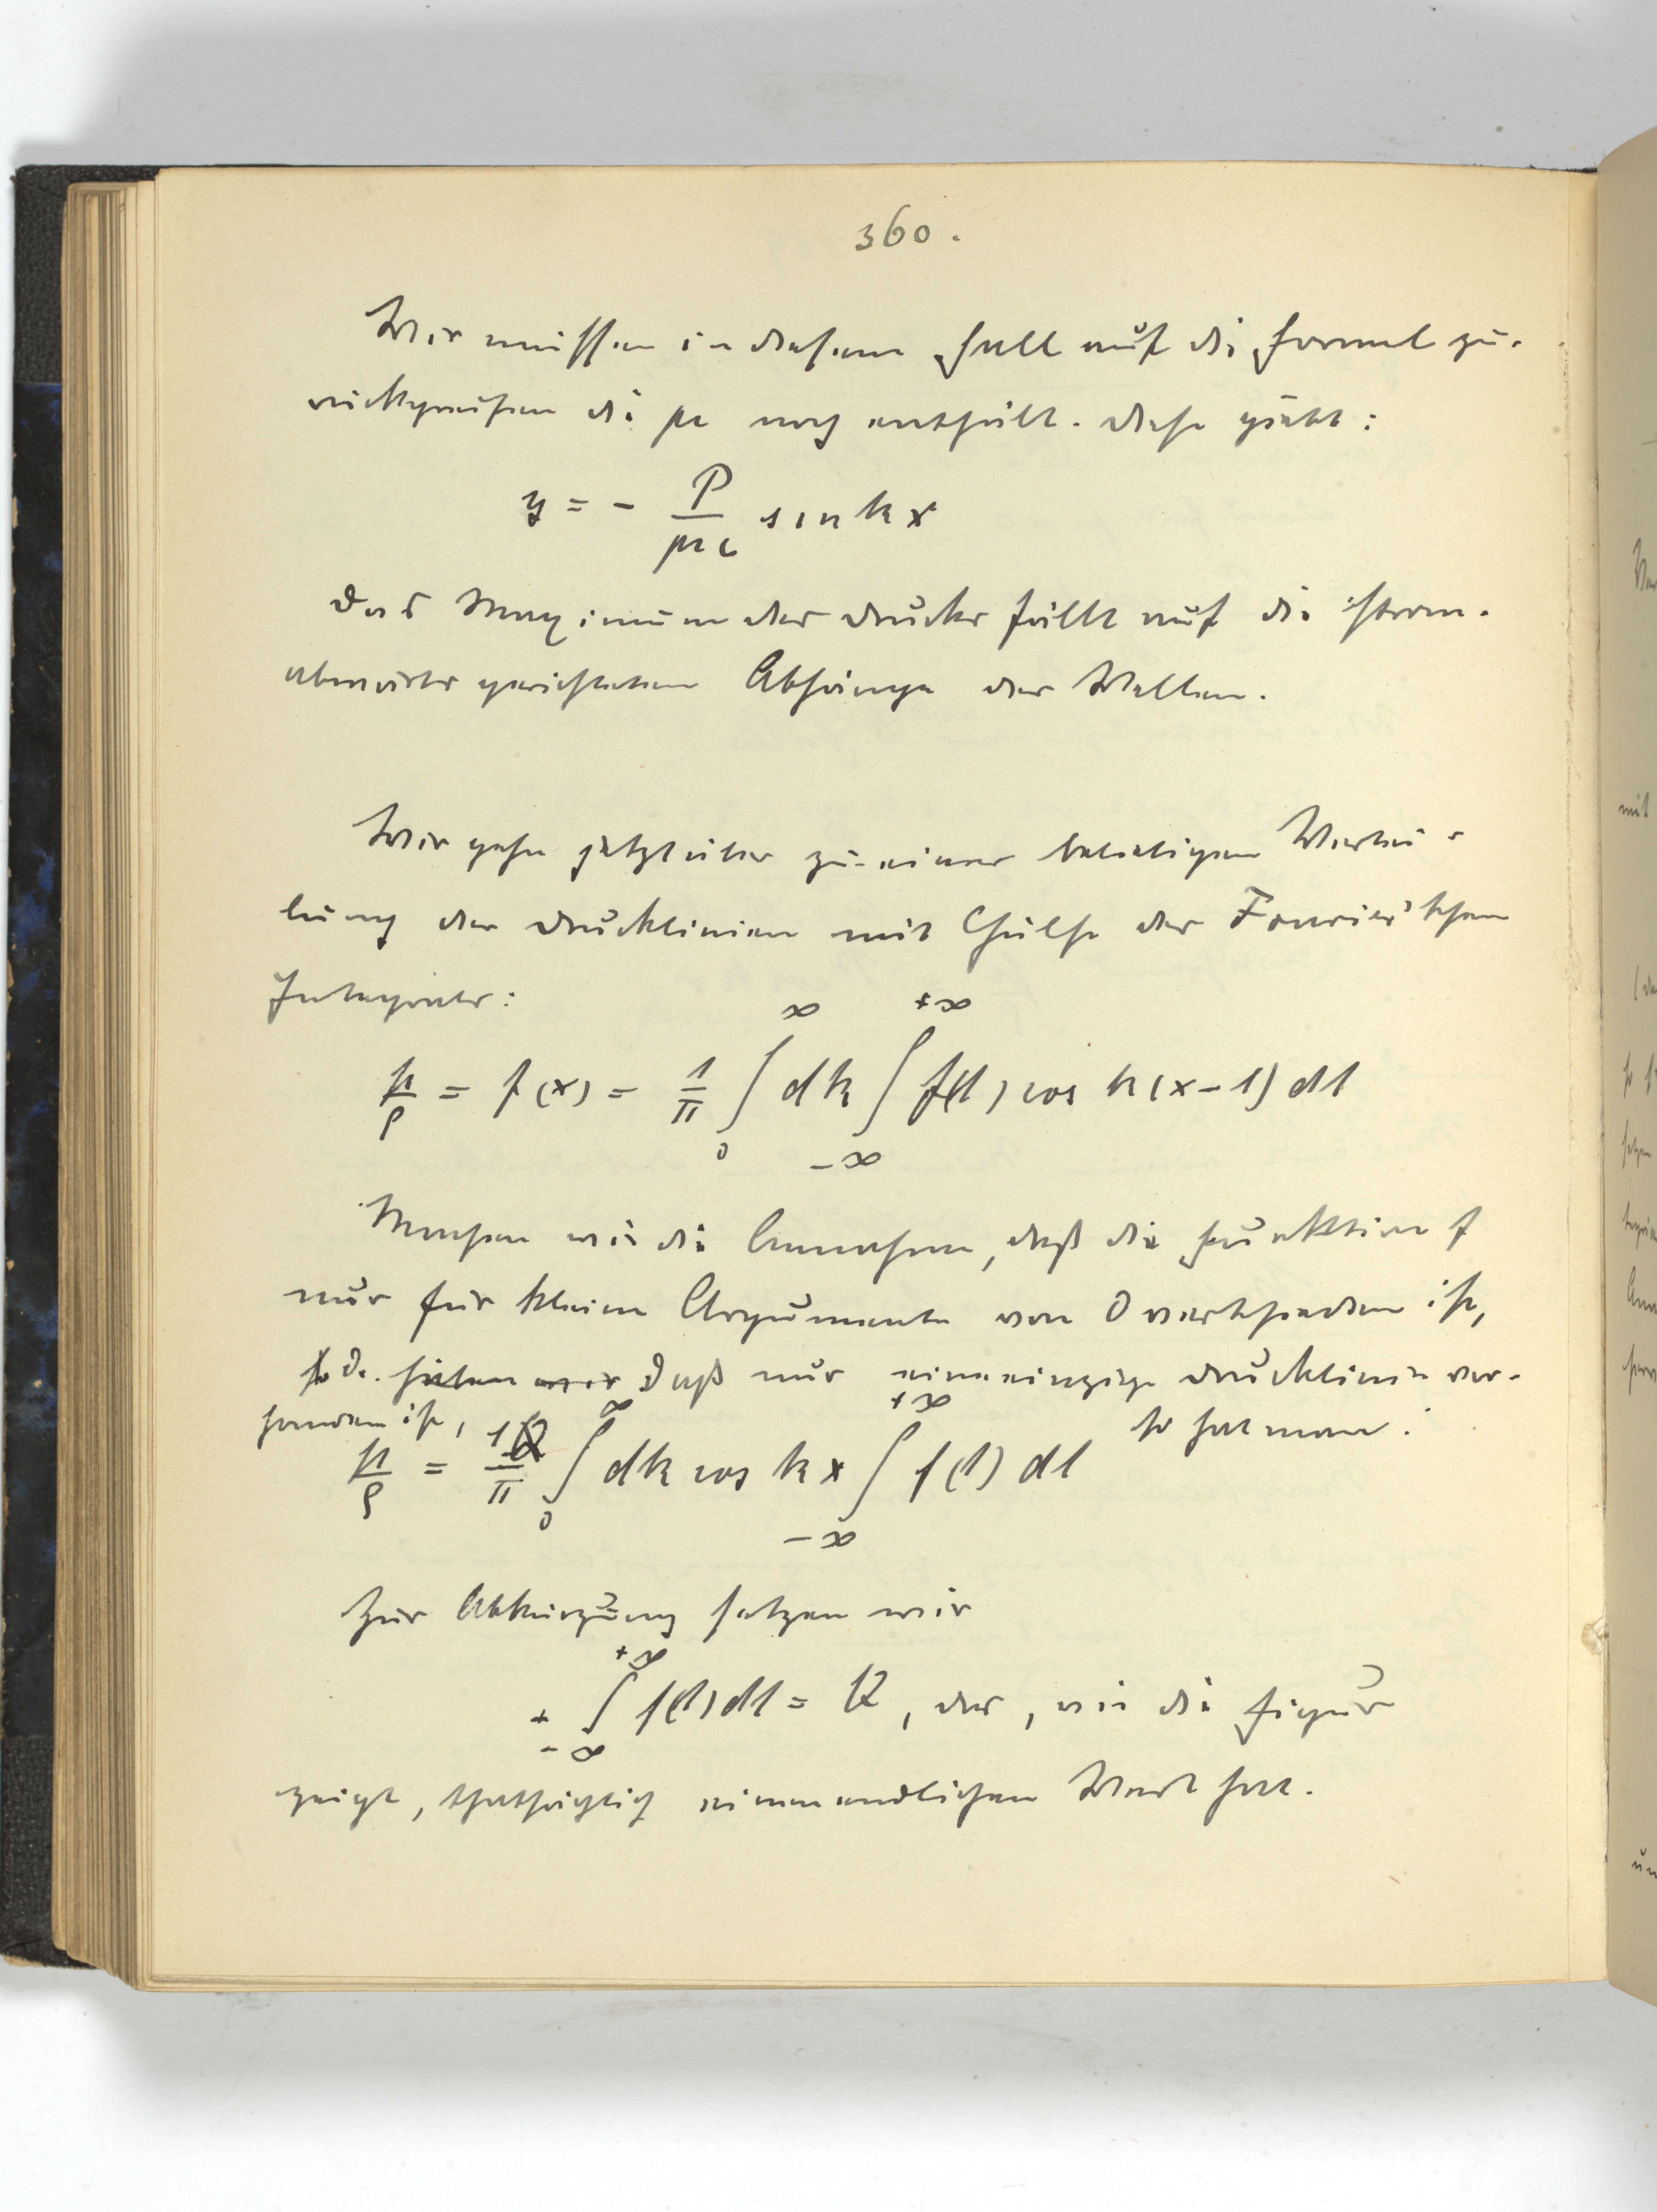 360.
Wir müssen in diesem Fall auf die Formel zu-
rückgreifen die μ noch enthält. Diese giebt:
y = - P/μc sin kx
Das Maximum des Druckes fällt auf die strom-
abwärts gerichteten Abhänge der Wellen.
Wir gehn jetzt über zu einer beliebigen Vertei-
lung der Drucklinien mit Hülfe des Fourier'schen
Integrales:
p/ρ = f(x) = 1/π ∫₀^∞ dk ∫_{-∞}^{+∞} f(l) cos k(x-l) dl
Machen wir die Annahme, daß die Funktion f
nur für kleine Argumente von 0 verschieden ist,
daß nur eine einzige Drucklinie vor-
handen ist, so hat man:
p/ρ = 1/π ∫₀^∞ dk cos kx ∫_{-∞}^{+∞} f(l) dl
Zur Abkürzung setzen wir
+ ∫_{-∞}^{+∞} f(l) dl = Q, das, wie die Figur
zeigt, thatsächlich einen endlichen Wert hat.